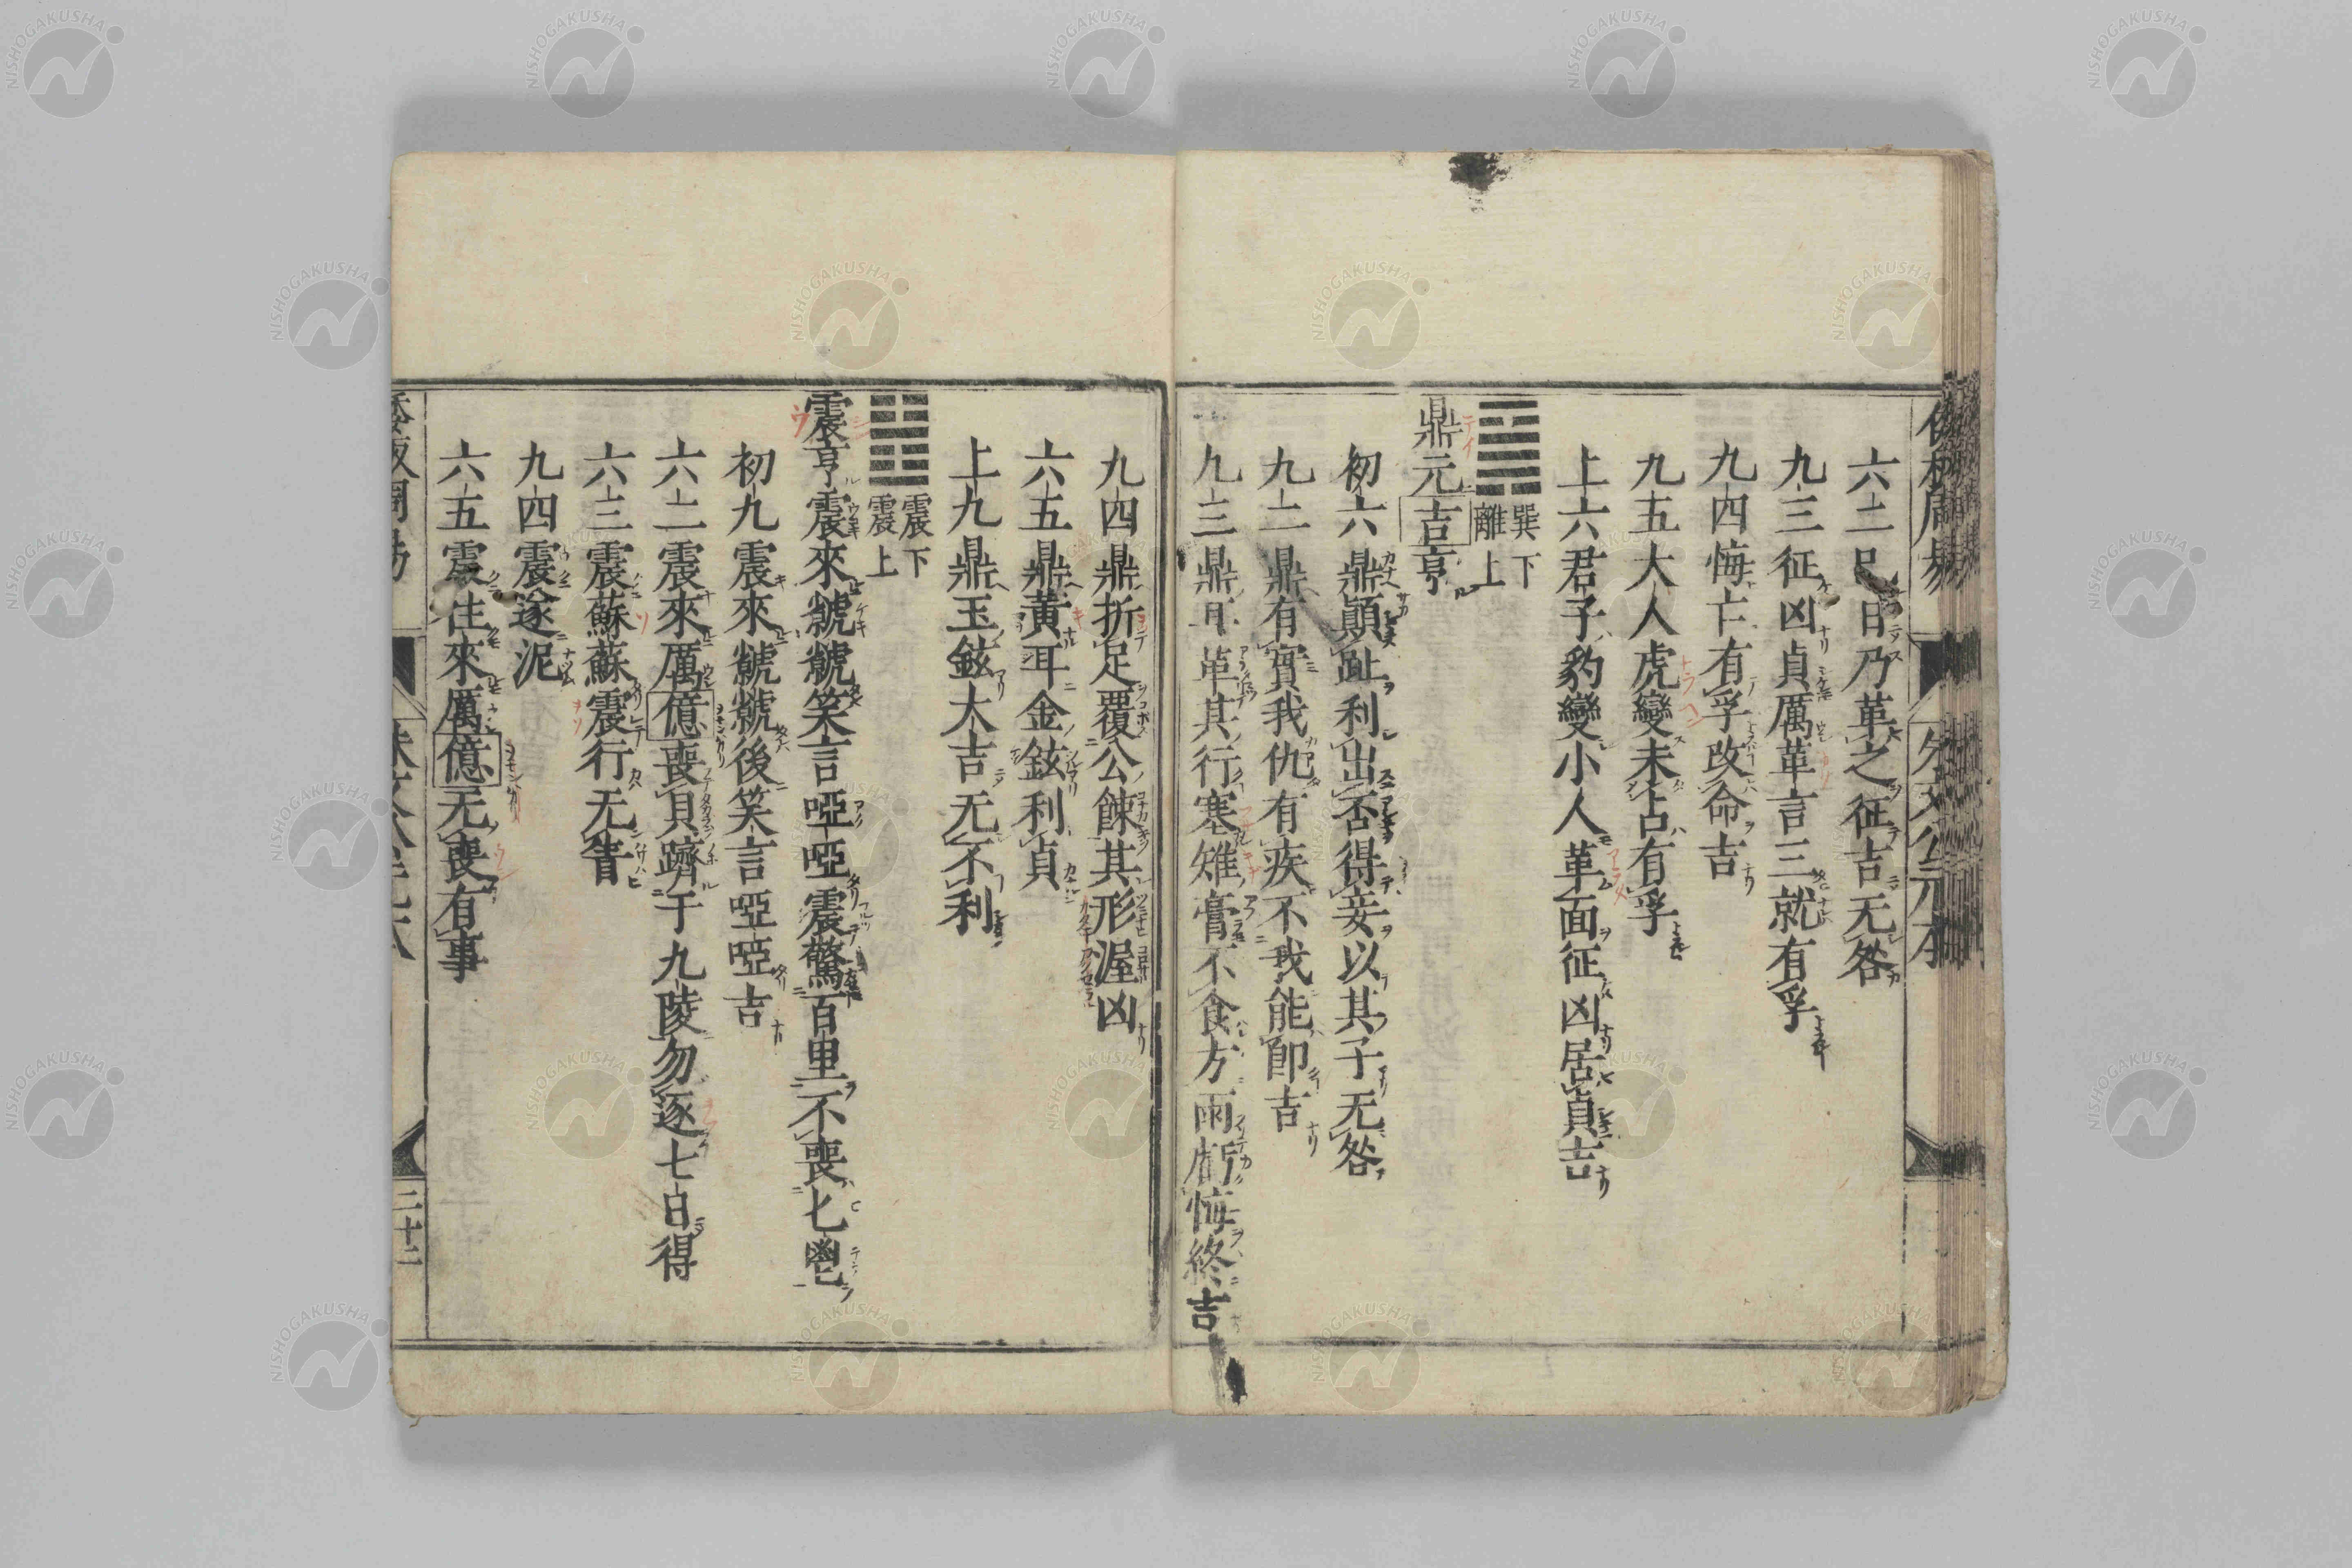 六二巳日乃革之征吉无咎
九三征凶貞厲革言三就有孚
九四悔亡有孚改命吉
九五大人虎變未占有孚
上六君子豹變小人革面征凶居貞吉
巽下
離上
鼎元吉亨
初六鼎顚趾利出否得妾以其子无咎
九二鼎有實我仇有疾不我能卽吉
九三鼎耳革其行塞雉膏不食方雨虧悔終吉
九四鼎折足覆公餗其形渥凶
六五鼎黃耳金鉉利貞
上九鼎玉鉉大吉无不利
震下
震上
震亨震來虩虩笑言啞啞震驚百里不喪匕鬯
初九震來虩虩後笑言啞啞吉
六二震來厲億喪貝躋于九陵勿逐七日得
六三震蘇蘇震行无眚
九四震遂泥
六五震往來厲億无喪有事
二十二
NISHOGAKUSHA